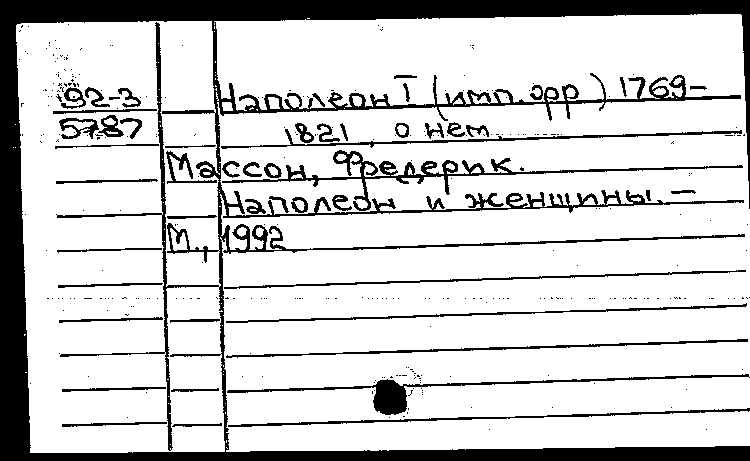 92-3 Наполеон I (имп. фр.) 1769-
5787 1821, о нем.
Массон, Фредерик.
Наполеон и женщины. —
М., 1992